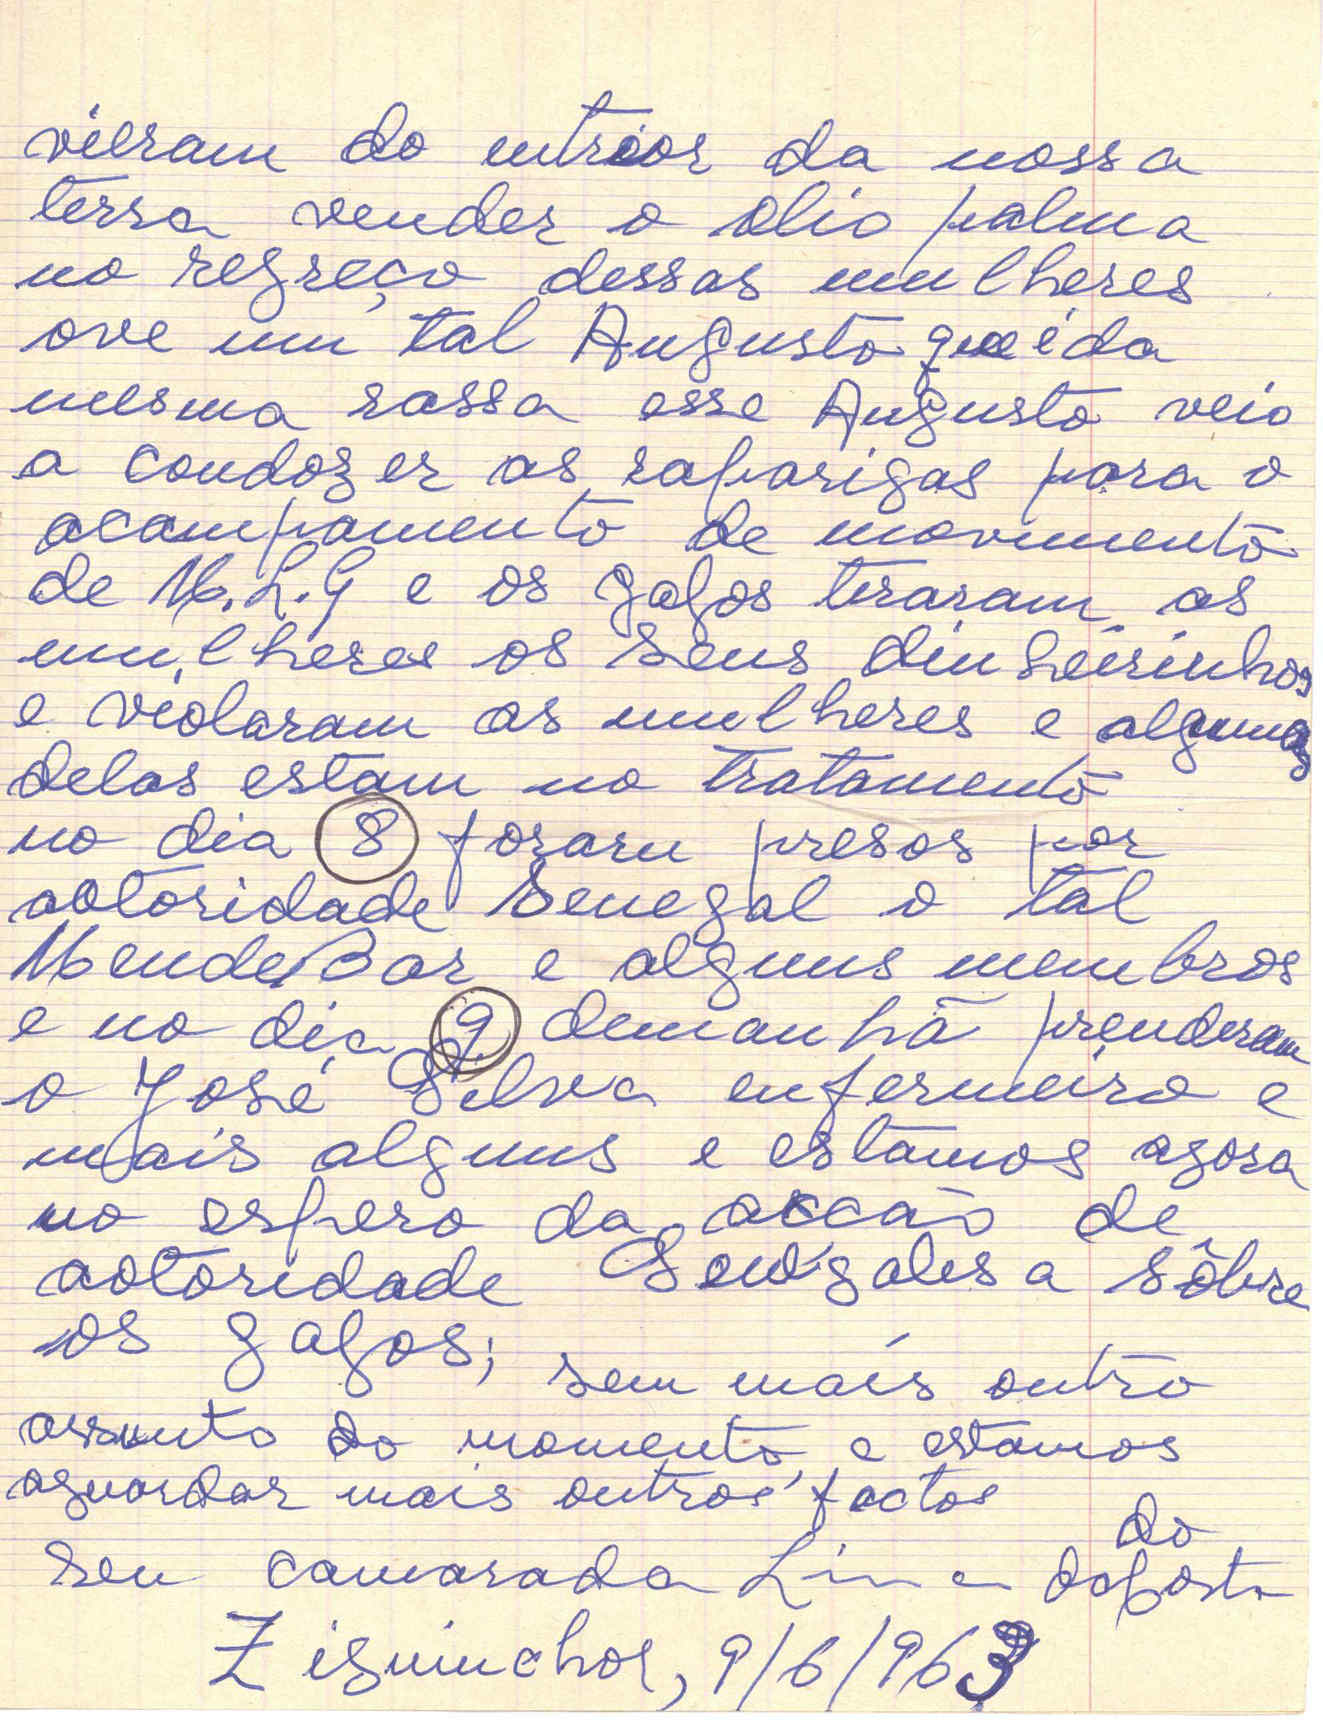 vieram do intrior da nossa
terra vender o olio palma
no regreço dessas mulheres
ove um tal Augusto que é da
mesma rassa esse Augusto veio
a condozer as raparigas para o
acampamento de movimento
de M.L.G e os gajos teraram as
mulheres os seus dinheirinhos
e violaram as mulheres e algumas
delas estam no tratamento
no dia 8 foram presos por
aotoridade Senegal o tal
Mende Bar e alguns membros
e no dia 9 demanhã prenderam
o José Silva enfermeiro e
mais alguns e estamos agora
no espero da accão de
aotoridade Senegalesa sôbre
os gajos; sem mais outro
assunto do momento e estamos
aguardar mais outros factos
do
seu camarada Lima
Ziguinchor, 9/6/963